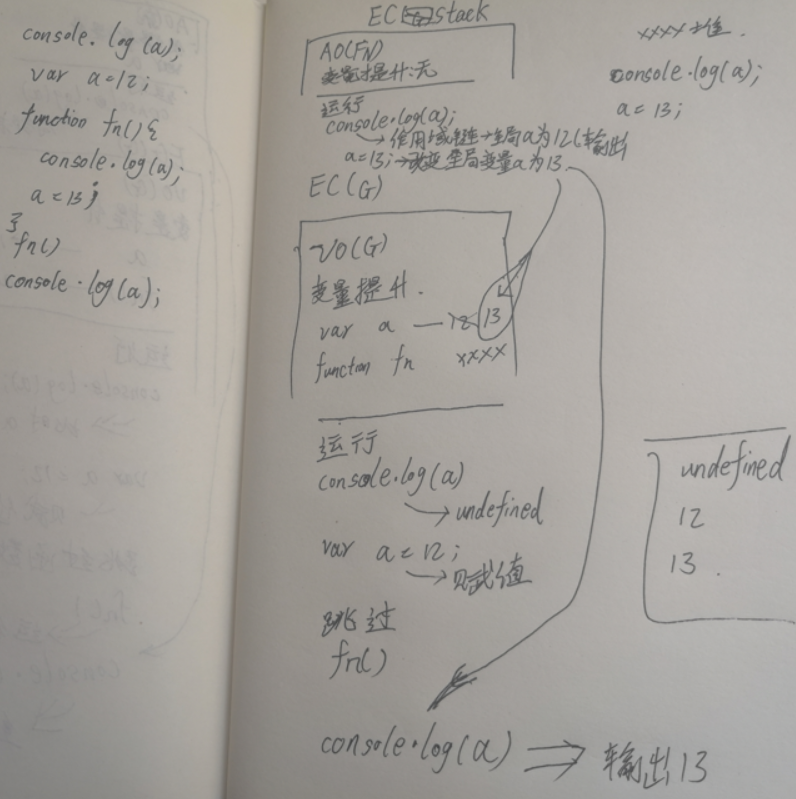 console.log(a);
var a=12;
function fn(){
console.log(a);
a=13;
}
fn()
console.log(a);
EC stack
AO(FN)
变量提升:无
运行
console.log(a);
→作用域链→全局a为12(输出)
a=13;→改变全局变量a为13
EC(G)
VO(G)
变量提升.
var a — 12 13
function fn xxxx
运行
console.log(a)
→undefined
var a=12;
→赋值
跳过
fn()
console.log(a) ⇒ 输出13
xxxx堆.
console.log(a);
a=13;
undefined
12
13.